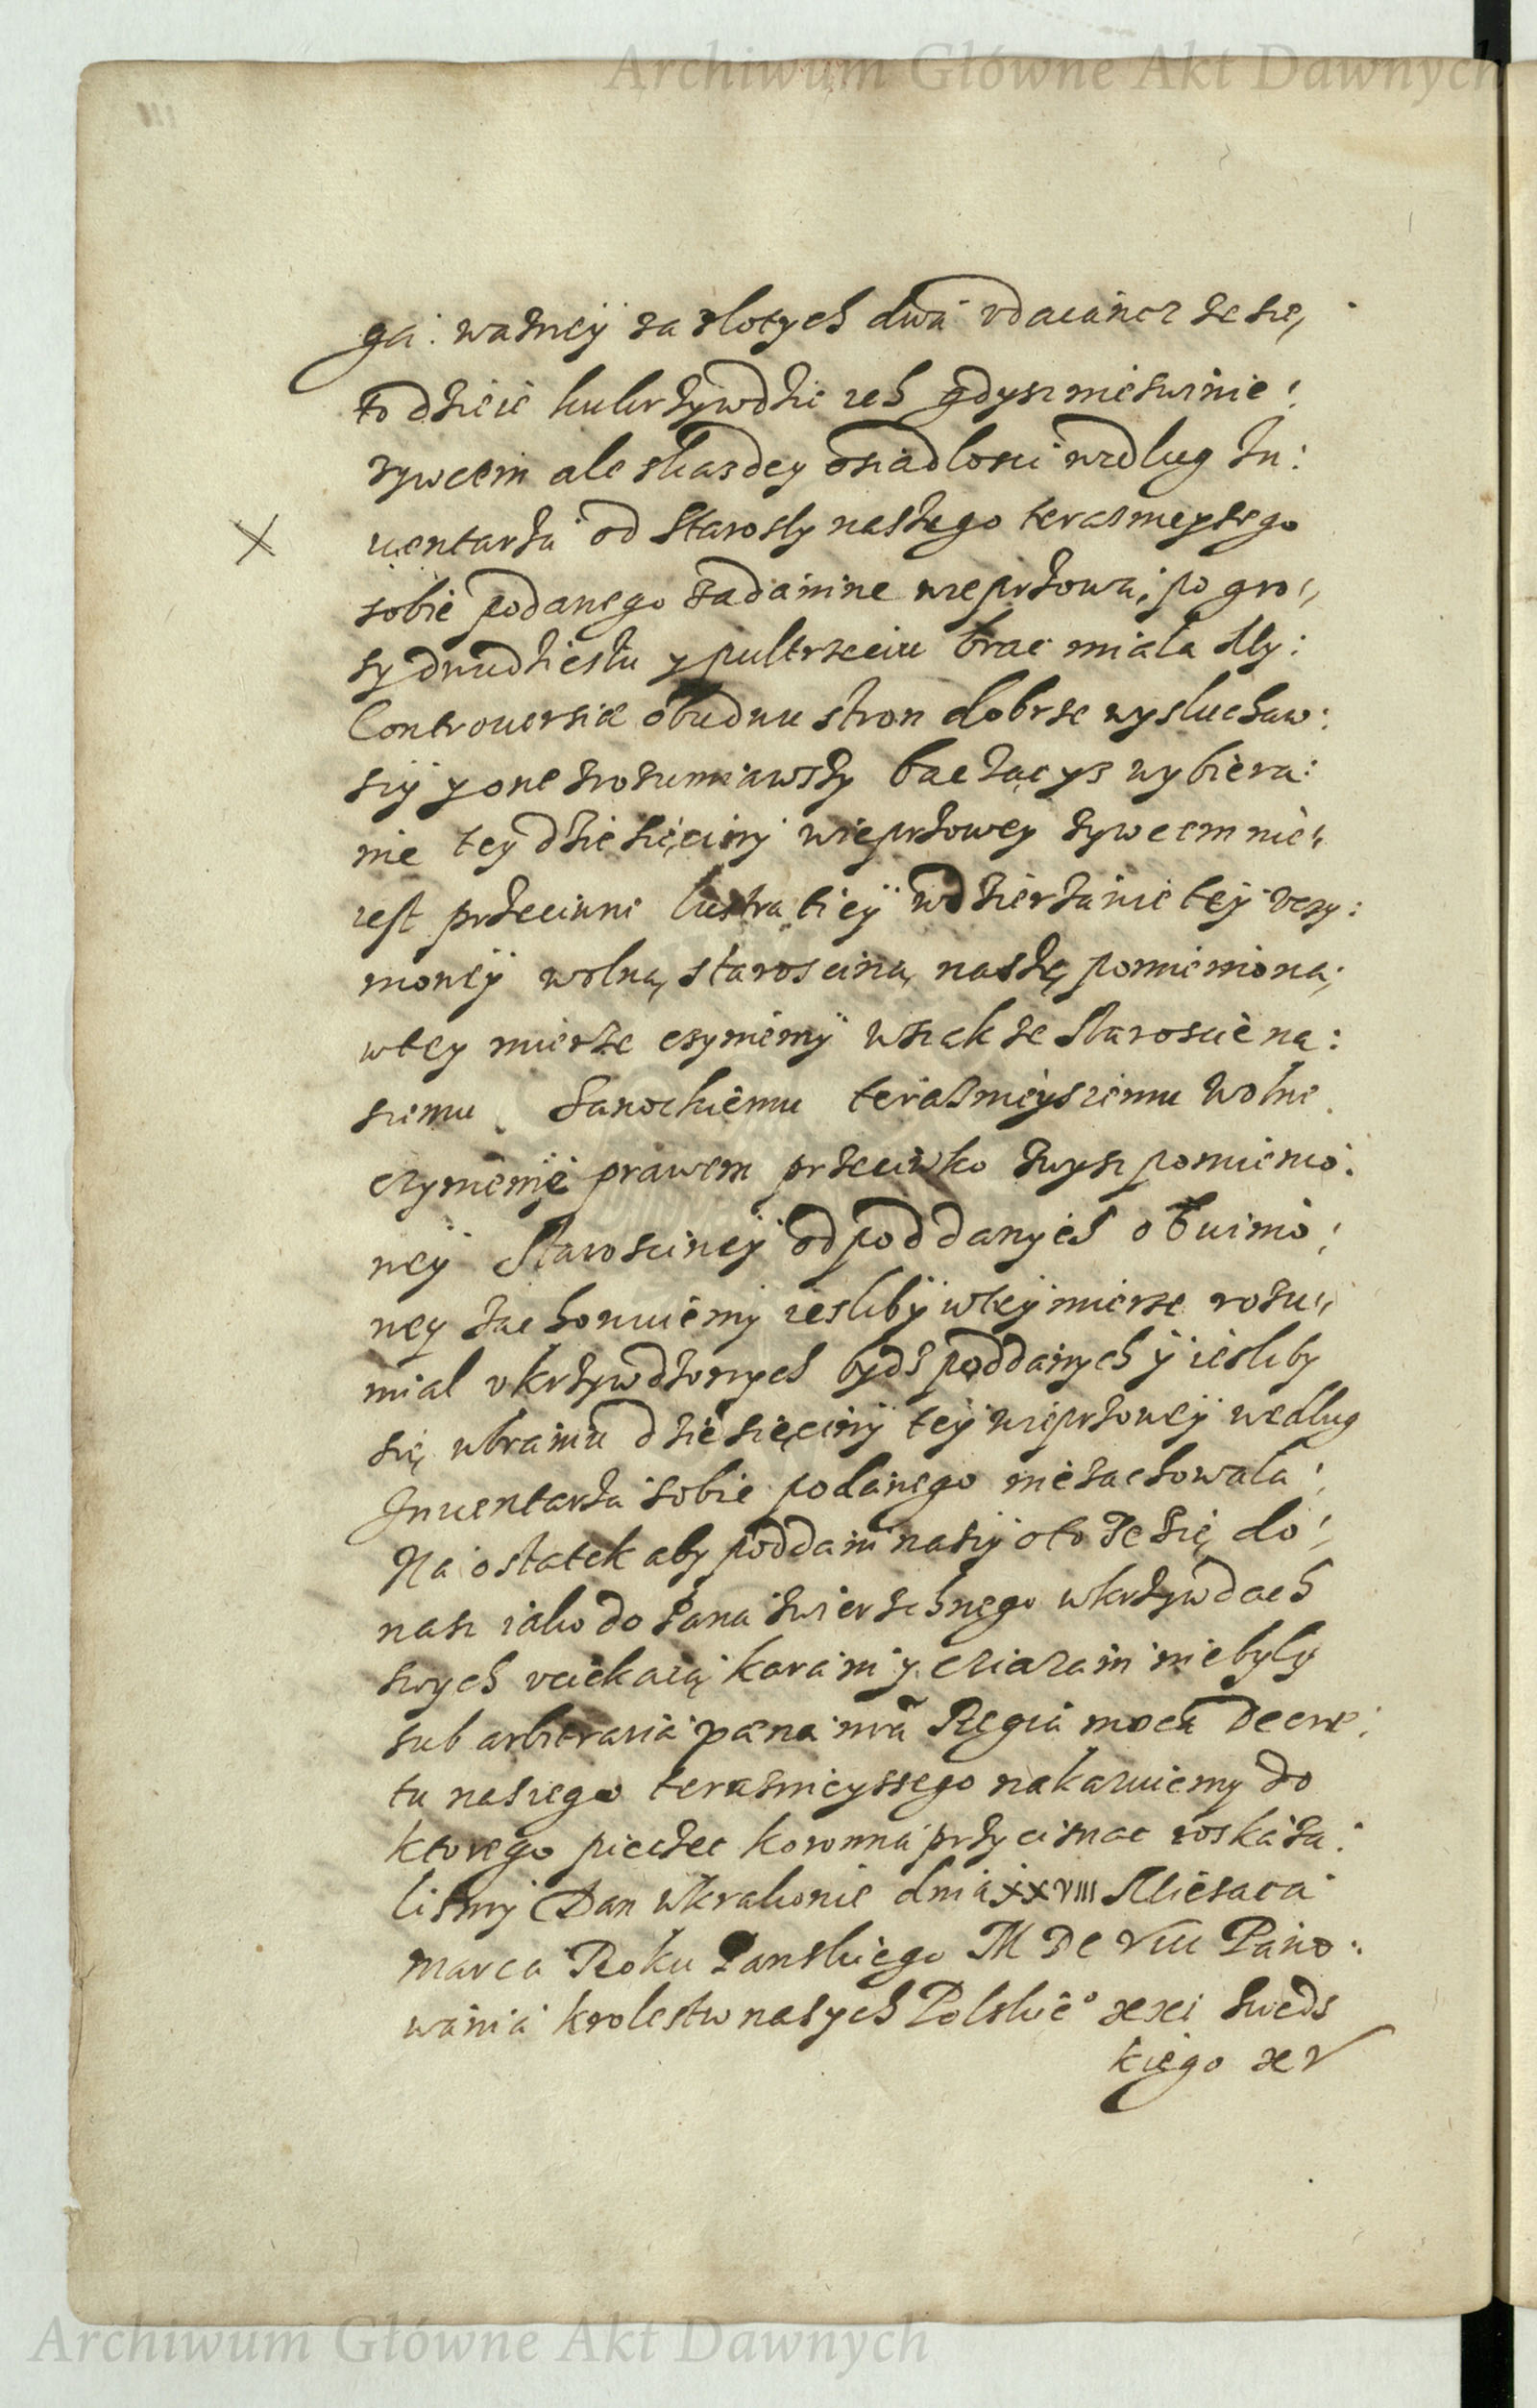 Archiwum Główne Akt Dawnych
ga: waznеÿ za zlotych dwa vdaiancz ze się,
to dzieie kukrzywdzie ich gdysz nieswinie:
zywcem ale zkazdey osiadlosci wedlug In:
uentarza od Starosty naszego terasnieysego
sobie podanego za daninę wieprzową po gro:
sy dwudziestu y pultrzeciu brac miala My:
Controuersie obudwu stron dobrze wysluchaw:
sÿ y one zrozumiawszy baczącys wybiera:
nie tey dziesięciny wieprzowey zywcem nie:
iest przeciwne lustratieÿ w dzierzanie teÿ
wolną starościną naszę pomienioną;
wtey mierze czyniemÿ wszakze Staroscie na:
szemu Sanockiemu terasnieyszemu wolne
czynienie prawem przeciwko zwysz pomienio:
neÿ Starościneÿ od poddanych obwinio:
ney zachowuiemy iesliby wteÿ mierze rozu:
mial vkrzywdzonych bydz poddanych ÿ iesliby
się wbraniu dziesięcinÿ teÿ wieprzoweÿ wedlug
Inuentarza sobie podanego niezachowala:
Na ostatek aby poddani nasÿ oto ze się do:
nasz iako do Pana zwierzchnego wkrzywdach
swych vciekaią karani y ciązani niebyly
sub arbitraria paena nra Regia mocą Decre:
tu naszego terasnieyssego nakazuiemy do
ktorego pieczec koronna przycisnac roskaza:
lismÿ Dan wKrakowie dnia xxVIII Miesaca
marca Roku Panskiego M DC VIII Pano:
wania krolestw nasych Polskie° xxi Sweds
kiego xV
Archiwum Główne Akt Dawnych